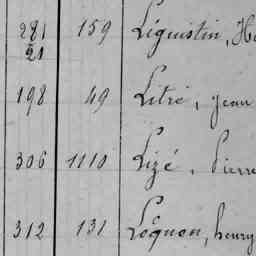 281 159 Léguistin, H
21
198 49 Litré, Jean
306 1110 Lizé, Pierre
312 131 Loquon, henry